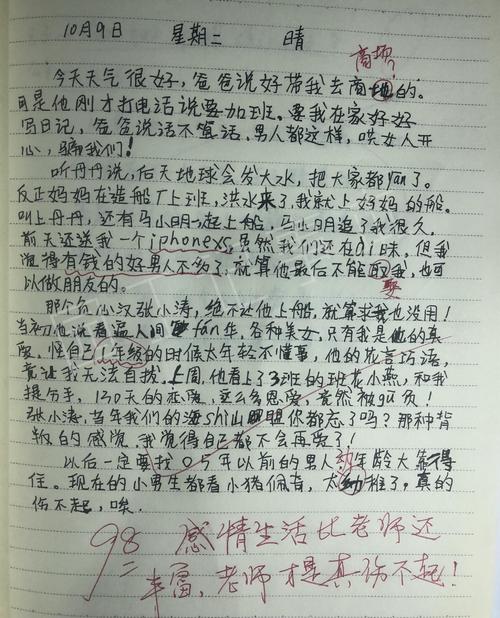 10月9日 星期二 晴
商场
今天天气很好,爸爸说好带我去商地的。
可是他刚才打电话说要加班。要我在家好好
写日记,爸爸说话不算话,男人都这样,哄女人开
心,骗我们!
听丹丹说,后天地球会发大水,把大家都yan了。
反正妈妈在造船厂上班,洪水来了,我就上妈妈的船。
叫上丹丹,还有马小明一起上船,马小明追了我很久,
前天还送我一个iphonexs,虽然我们还在ai昧,但我
觉得有钱的好男人不多了,就算他最后不能取我,也可
娶
以做朋友的。
那个负心汉张小涛,绝不让他上船,就算求我也没用!
当初他说看遍人间fan华,各种美女,只有我是他的真
爱,怪自己1年级的时候太年轻不懂事,他的花言巧语,
竟让我无法自拔,上周,他看上了3班的班花小燕,和我
提分手,130天的恋爱,这么多恩爱,竟然被gu负!
张小涛,当年我们的海shi山盟你都忘了吗?那种背
叛的感觉,我觉得自己都不会再爱了!
以后一定要找05年以前的男人,年龄大靠得
住。现在的小男生都看小猪佩奇,太幼稚了,真的
伤不起,唉。
98 感情生活比老师还
丰富,老师才是真伤不起!